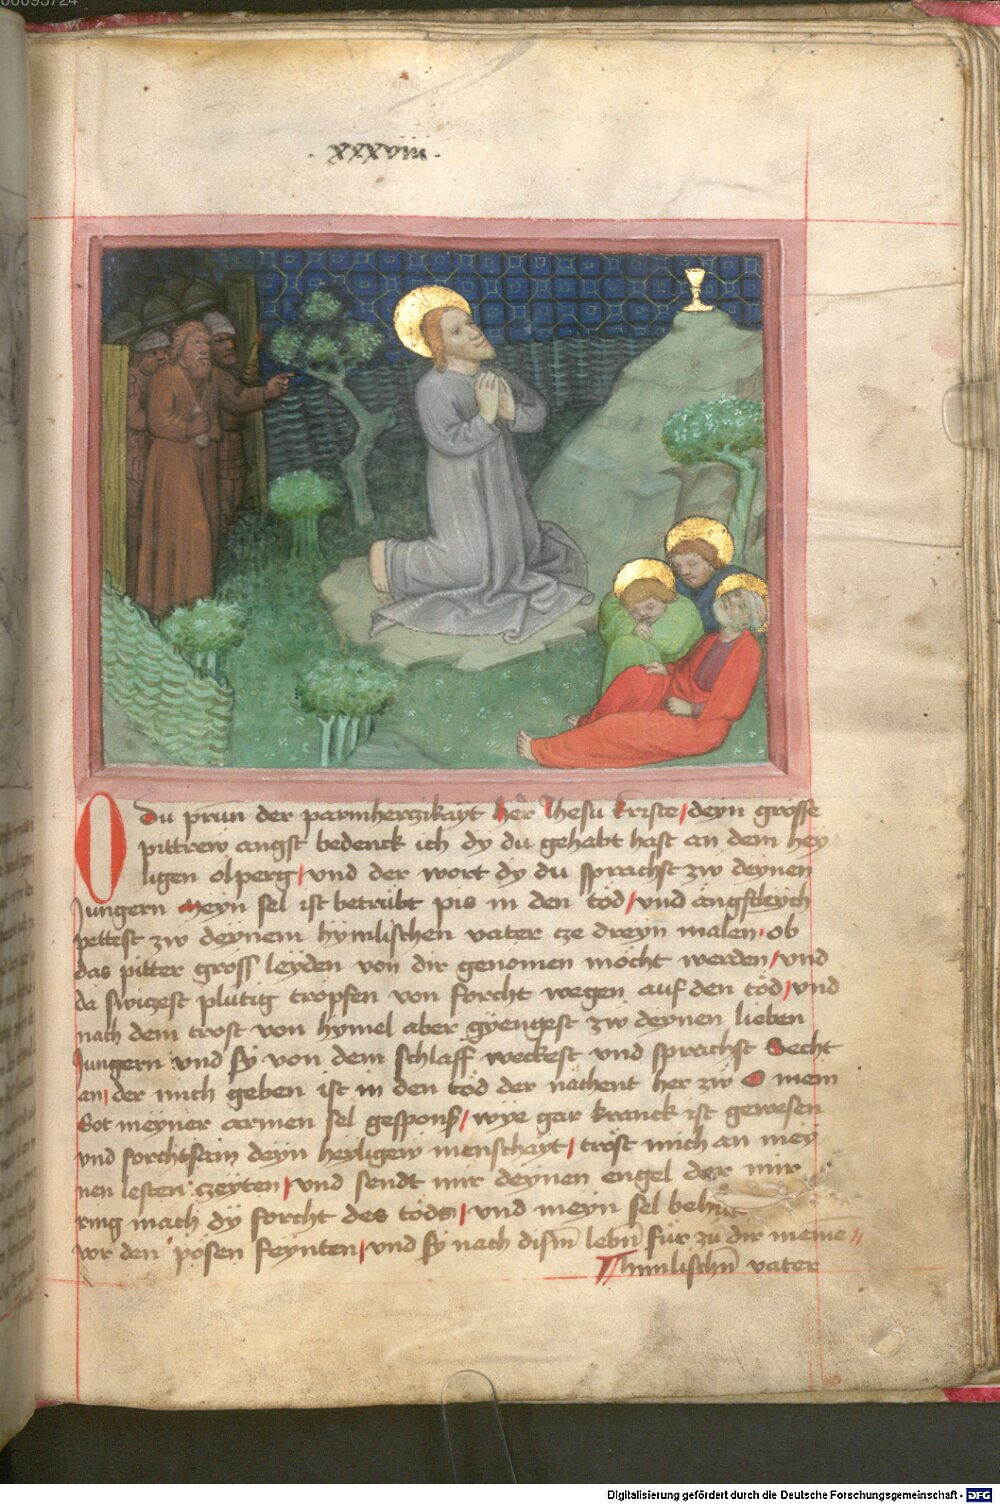 00095724
· xxxviii ·
O du prun der parmherczikayt her Jhesu kriste / deyn grosse
pittrew angst bedenck ich dy du gehabt hast an dem hey
ligen olperg / vnd der wort dy du sprachst zw deynen
Jungern Meyn sel ist betrübt pis in den tod / vnd angstleych
pettest zw deynem hymlischen vater cze dreyn malen · ob
das pitter gross leyden von dir genomen möcht werden / vnd
da swiczest plutig tropfen von forcht wegen auf den töd / vnd
nach dem trost von hymel aber gyengest zw deynen lieben
Jungern vnd sy von dem schlaff weckest vnd sprachst Secht
an / der mich geben ist in den töd der nachent her zw O mein
Got meyner armen sel gespons / wye gar kranck ist gewesen
vnd forchtsam deyn heyligew menschayt / tröst mich an mey
nen lesten czeyten / vnd sendt mir deynen engel der mir
ring mach dy forcht des töds / vnd meyn sel behüt
vor den pösen feynten / vnd sy nach dism̄ lebn̄ für zu dir meinē //
hmlischn̄ vater
Digitalisierung gefördert durch die Deutsche Forschungsgemeinschaft - DFG